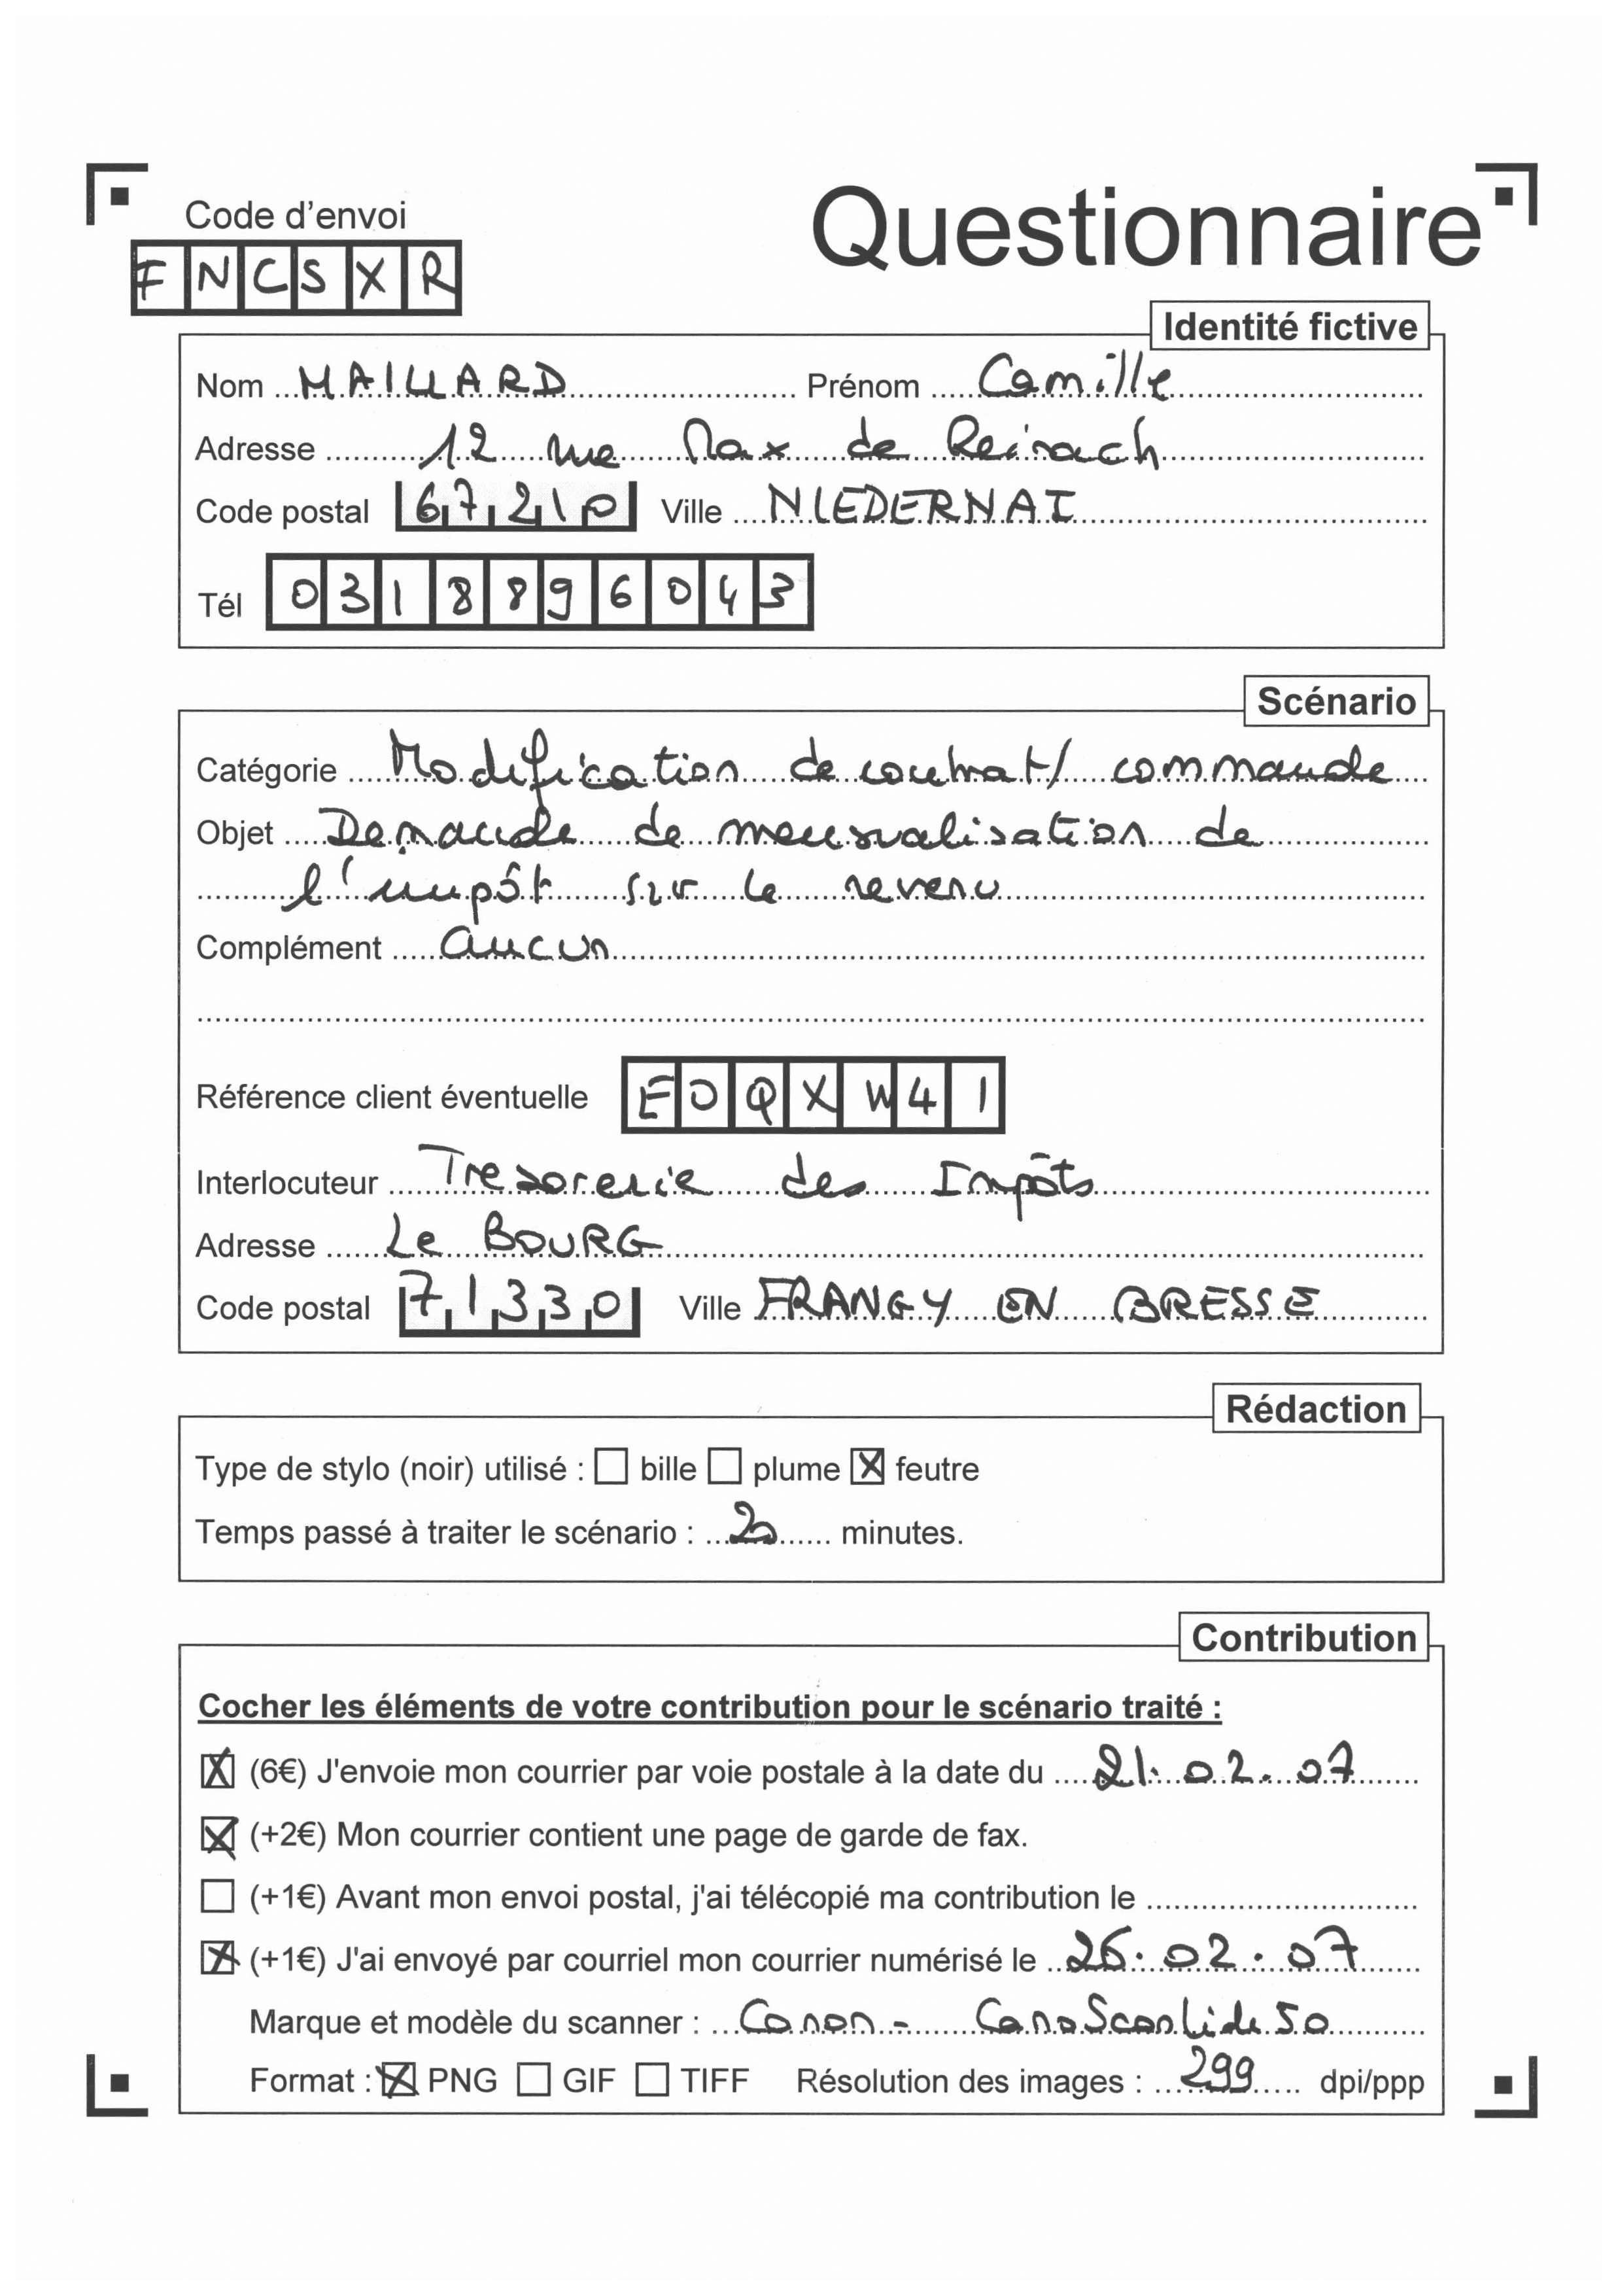 Code d'envoi
Questionnaire
F N C S X R
Identité fictive
Nom MAILLARD Prénom Camille
Adresse 12 rue Max de Reinach
Code postal 67210 Ville NIEDERNAI
Tél 0318896043
Scénario
Catégorie Modification de contrat/ commande
Objet Demande de mensualisation de
l'impôt sur le revenu
Complément aucun
Référence client éventuelle EOQXW41
Interlocuteur Tresorerie des Impôts
Adresse Le BOURG
Code postal 71330 Ville FRANGY EN BRESSE
Rédaction
Type de stylo (noir) utilisé : bille plume feutre
Temps passé à traiter le scénario : 20 minutes.
Contribution
Cocher les éléments de votre contribution pour le scénario traité :
(6€) J'envoie mon courrier par voie postale à la date du 21.02.07
(+2€) Mon courrier contient une page de garde de fax.
(+1€) Avant mon envoi postal, j'ai télécopié ma contribution le
(+1€) J'ai envoyé par courriel mon courrier numérisé le 26.02.07
Marque et modèle du scanner : Canon - CanoScanLide 50
Format : PNG GIF TIFF Résolution des images : 299 dpi/ppp